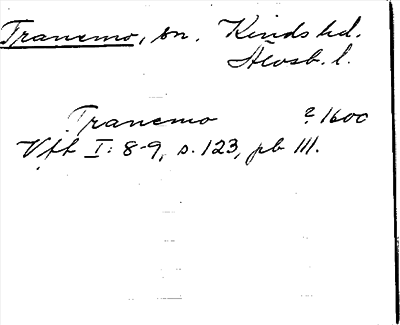 Tranemo, sn. Kinds hd.
Älvsb. l.
Tranemo ? 1600
Vff I: 8-9, s. 123, pl. III.